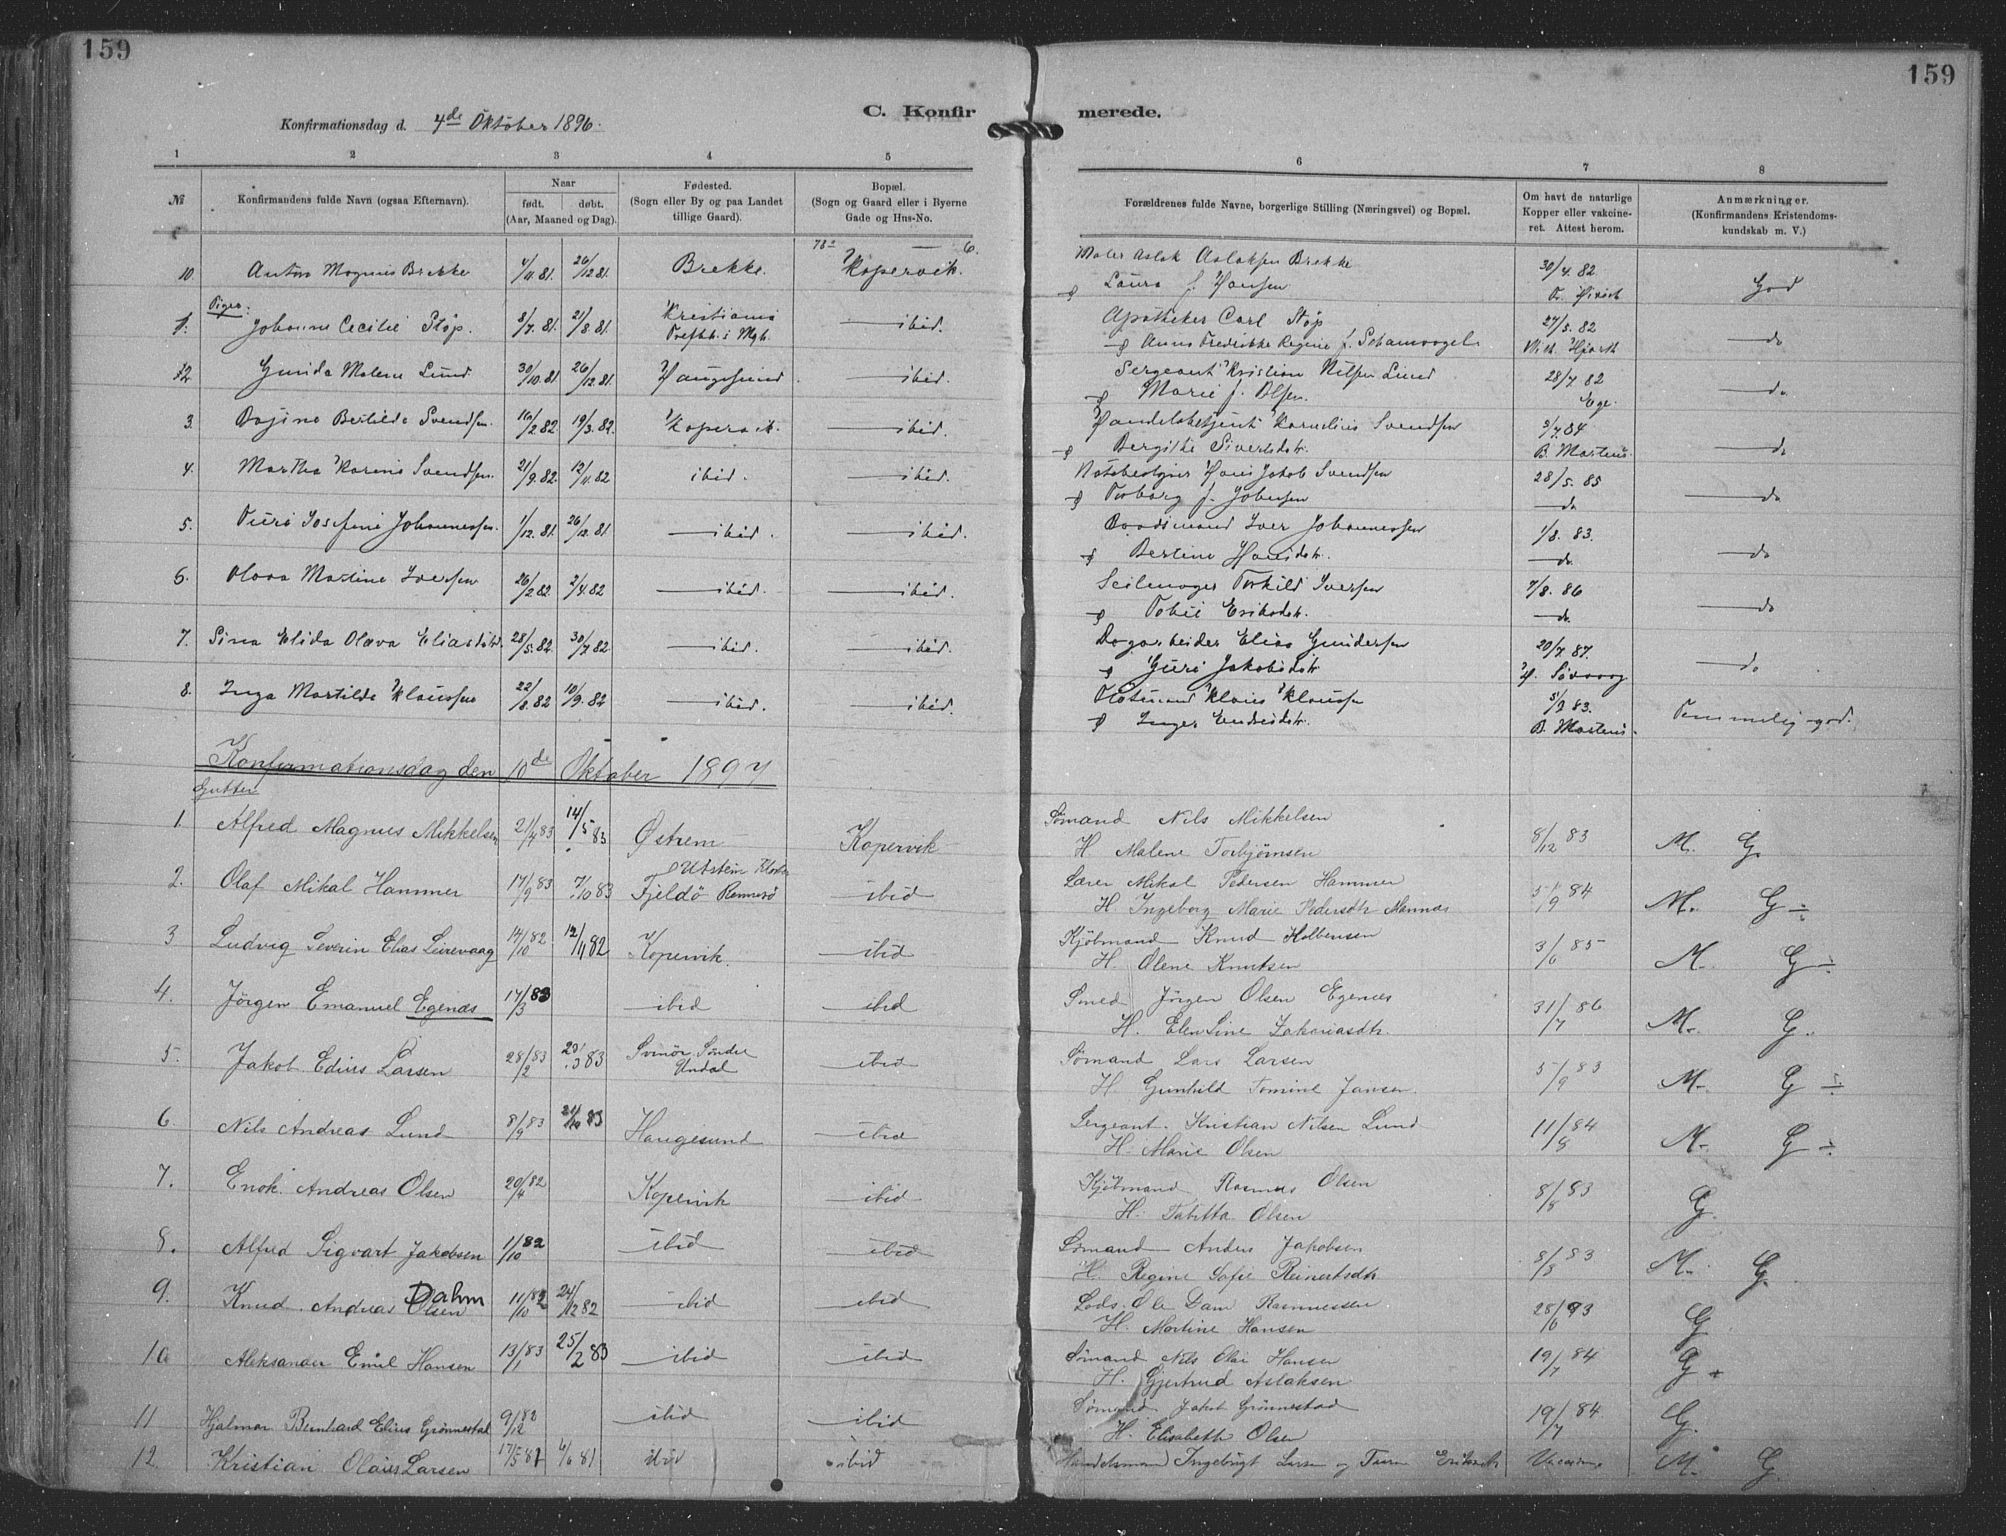 159
159
C. Konfirmerede.
Konfirmationsdag d. 4de Oktober 1896.
1 2 3 4 5 6 7 8
№ Konfirmandens fulde Navn (ogsaa Efternavn). Naar født. døbt. (Aar, Maaned og Dag). Fødested. (Sogn eller By og paa Landet tillige Gaard). Bopæl. (Sogn og Gaard eller i Byerne Gade og Hus-No. Forældrenes fulde Navne, borgerlige Stilling (Næringsvei) og Bopæl. Om havt de naturlige Kopper eller vakcineret. Attest herom. Anmærkninger. (Konfirmandens Kristendomskundskab m. V.)
10. Anton Magnus Brekke 4/11 81. 26/12 81. Brekke. Kopervik. Maler Aslak Aslaksen Brekke 30/4. 82 God
& Laura f. Hansen
Piger.
1. Johanne Cecilie Støp. 8/7. 81. 21/8 81. Kristiania ibid. Apotheker Carl Støp 27/5. 82 do
& Anna Fredrikke Regine f. Schamvogel Hjorth
12. Gunda Malene Lund 30/10. 81. 26/12. 81. Haugesund. ibid. Sergeant Kristian Nilsen Lund 28/7 82 do
& Marie f. Olsen. Ege.
3. Bertilde Svendsen. 16/2 82. 19/3. 82. Kopervik. ibid. Handelsbetjent Kornelius Svendsen 3/7. 84 do
& Bergithe Sivertsdtr. B. Martens
4. Martha Karine Svendsen. 21/9. 82. 12/11. 82 ibid. ibid. Hans Jakob Svendsen 28/5. 85 do
& Torborg f. Johnsen do
5. Turi Josefine Johannessen. 1/12. 81. 26/12. 81. ibid. ibid. Iver Johannessen 1/8. 83. do
& Bertine Hansdtr. do.
6. Olava Martine Iversen 26/2 82 2/4. 82 ibid. ibid. Seilmager Torkild Iversen 7/8. 86 do
& Tobie Eriksdtr. do.
7. Sina Elida Olava Eliasdtr. 28/5. 82. 30/7. 82 ibid. ibid. Dagarbeider Elias Gundersen 20/7. 87. do
& Guri Jakobsdtr
8. Inga Martilde Klaussen 22/8. 82 10/9. 82 ibid. ibid. Klaus Klaussen 5/9 83. Temmelig god.
& Inger Endresdtr. B. Martens
Konfirmationsdag den 10de Oktober 1897
Gutter
1. Alfred Magnus Mikkelsen 21/4 83 14/5 83 Østrem Kopervik Sømand Nils Mikkelsen 8/12 83 M. G.
H. Malene Torbjørnsen
2. Olaf Mikal Hammer 17/9 83 7/10 83 Utstein Kloster ibid Lærer Mikal Pedersen Hammer 5/9 84 M. G ÷
Fjeldö Rennesö H. Ingeborg Marie Pedersdtr Mannes
3 Ludvig Severin Elias Leirevaag 14/10 82 12/11 82 Kopervik. ibid Kjøbmand Knud Kolbensen 3/6 85 M. G ÷
H. Olene Knutsen
4. Jörgen Emanuel Egenæs 17/3 83 ibid ibid Smed Jörgen Olsen Egenæs 31/7 86 M. G.
H. Elen Sine Zakariasdtr.
5. Jakob Edius Larsen 28/2 83 25/3 83 Svinör Söndre Undal ibid Sømand Lars Larsen 5/9 83 M. G ÷
H. Gunhild Tomine Jansen.
6 Nils Andreas Lund 8/9 83 21/10 83 Haugesund ibid Sergeant. Kristian Nilsen Lund 11/8 84 M. G ÷
H. Marie Olsen
7. Enok Andreas Olsen 20/4 82 Kopervik ibid Kjöbmand Rasmus Olsen 8/8 83 G.
H. Tabitta Olsen
8. Alfred Sigvart Jakobsen 1/10 82 ibid ibid Sømand Anders Jakobsen 8/8 83 M. G.
H. Regine Sofie Reinertsdtr
9. Knud Andreas Olsen Dahm 11/10 82 24/12 82 ibid ibid Lods. Ole Dam Rasmussen 28/6 93 G
H. Martine Hansen
10 Aleksander Emil Hansen 13/1 83 25/2 83 ibid ibid Sømand Nils Olai Hansen 19/7 84 G
H. Gjertrud Aslaksen
11 Hjalmar Bernhard Elius Grönnestad 9/12 82 ibid ibid Sømand Jakob Grönnestad 19/7 84 G.
H. Elisabeth Olsen
12. Kristian Olaus Larsen 17/5 81 6/6 81 ibid ibid Handelsmand Ingebrigt Larsen og Taara Eriksdtr M. G.